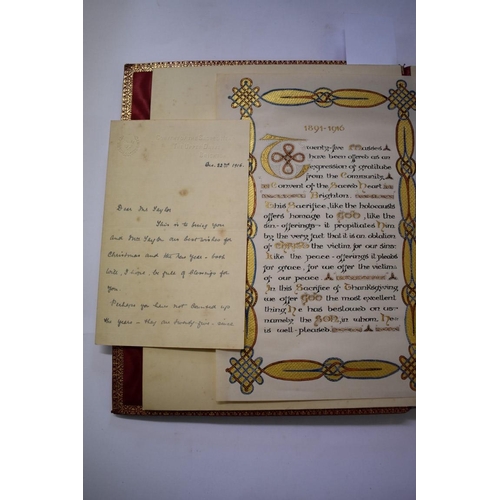 Dec. 22nd 1916.
Dear Mr Taylor
This is to bring you
and Mrs Taylor our best wishes for
Christmas and the New Year – both
will, I hope, be full of blessings for
you.
Perhaps you have not counted up
the years – they are twenty five – since
1891-1916
Twenty-five Masses
have been offered as an
expression of gratitude
from the Community,
Convent of the Sacred Heart
Brighton.
This Sacrifice, like the holocausts
offers homage to GOD, like the
sin-offerings it propitiates Him
by the very fact that it is an oblation
of CHRIST the victim for our sins:
Like the peace-offerings it pleads
for grace, for we offer the victim
of our peace.
In this Sacrifice of Thanksgiving
we offer GOD the most excellent
thing He has bestowed on us-
namely the SON, in whom He
is well-pleased.